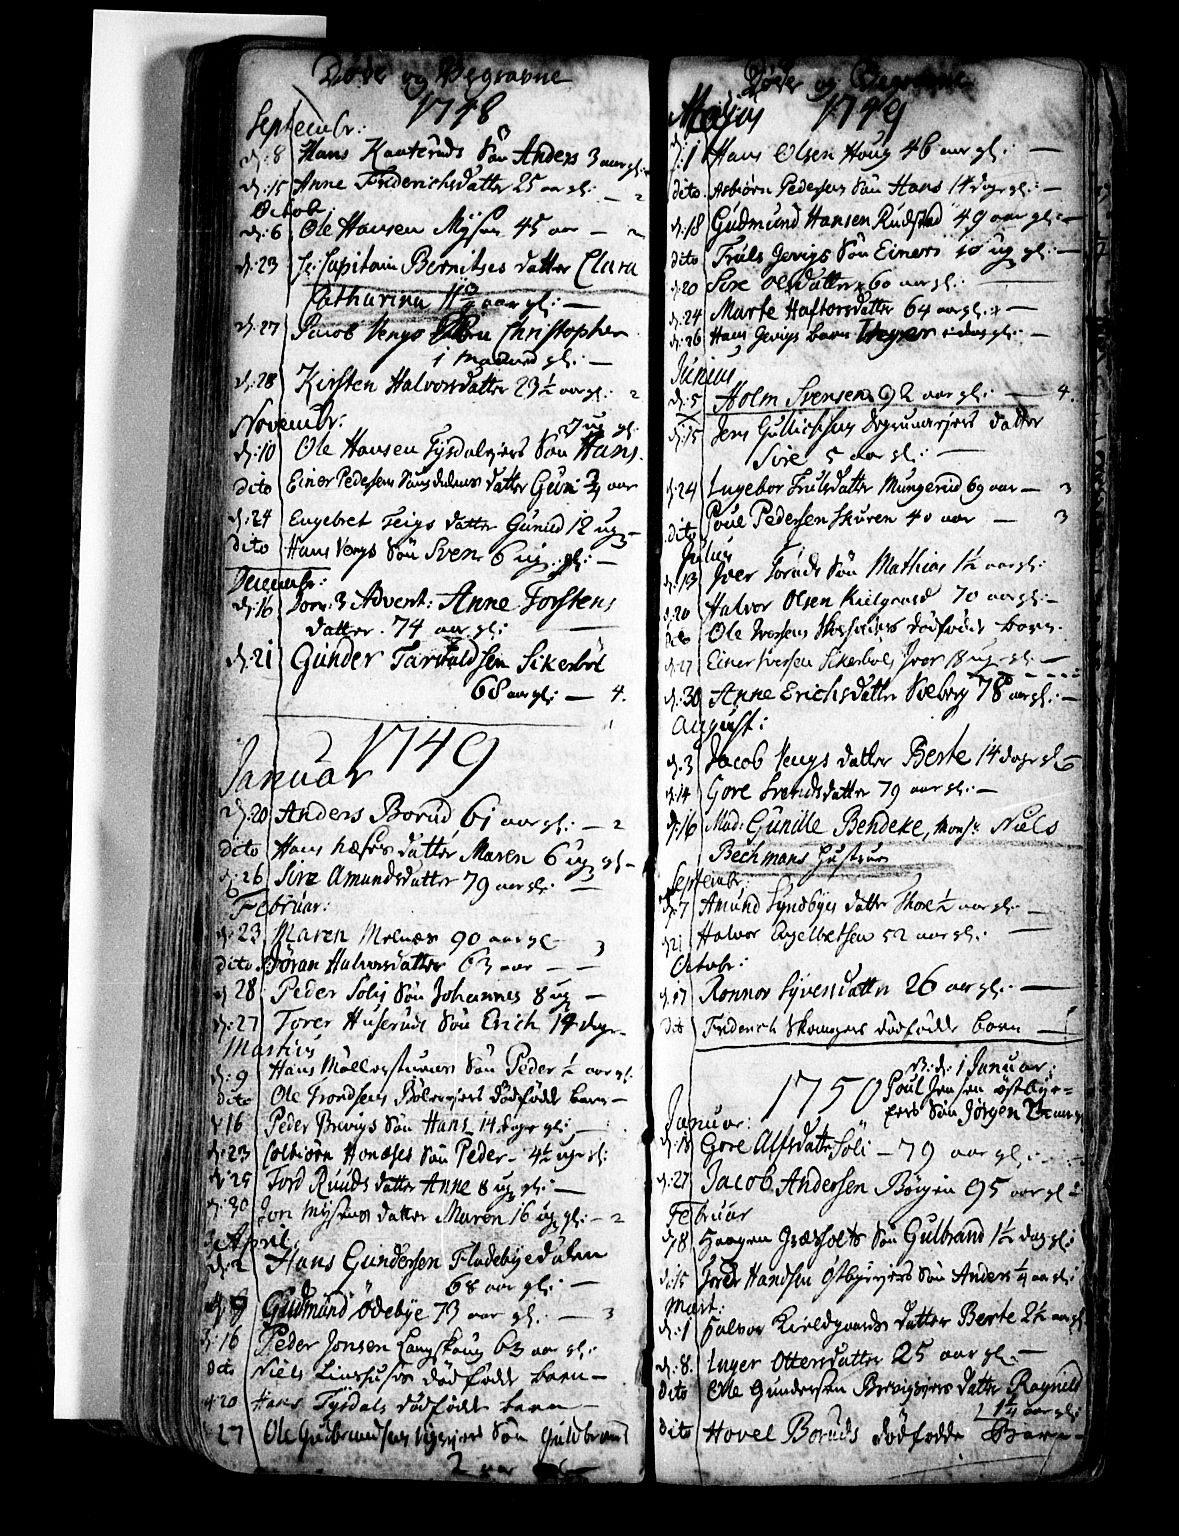 Døde og Begravne
1748
Septembr:
d: 8 Hans Kaateruds Søn Anders 3 aar gl:
d: 15 Anne Friderichsdatter 25 aar gl: — 2
Octob:
d: 6 Ole Hansen Mysen 45 aar —
d: 23 Capitain Bernitses datter Clara
Catharina aar gl: —
d: 27 Jacob Vengs Søn Christopher
1 Maaned gl: —
d: 28 Kirsten Halvorsdatter 23½ aar gl: 2
Novembr: 7 ug gl:
d: 10 Ole Hansen Søn Hans
dito Einer Pedersens datter Guni ¾ aar
d: 24 Engebret Teigs datter Gunild 12 ug
dito Hans Vengs Søn Sven 6 ug. gl: —
Decembr:
d: 16 Dom: 3 Advent: Anne Torstens
datter 74 aar gl: —
d: 21 Gunder Tarvaldsen Sikerbøl
68 aar gl: — 4.
1749
Januar
d: 20 Anders Borud 61 aar gl: — 2
dito Hans datter Maren 6 ug gl —
d: 26 Sire Amundsdatter 79 aar gl: —
Februar:
d: 23 Maren Melnæs 90 aar gl — 3
dito Jøran Halvorsdatter 63 aar —
d: 28 Peder Solis Søn Johannes 8 ug —
d: 27 Torer Huseruds Søn Erich 14 dage
Martius
d: 9 Hans Møllerstuens Søn Peder ½ aar gl:
dito Ole Trondsens dødfødde barn —
d: 16 Peder Brevigs Søn Hans 14 dage gl: —
d: 23 Colbiørn Honæses Søn Peder 4½ uge gl:
d: 25 Tord Ruuds datter Anne 8 ug gl: —
d: 30 Jon Mysens datter Maren 16 ug gl: — 2
April
d: 2 Hans Gundersen Fladebyedalen
68 aar gl: —
d: 9 Gudmund Ødebye 73 aar gl: — 3
d: 16 Peder Jonsen Langskoug 63 aar gl:
dito Niels Linshuses dødfødde barn —
d: 20 Hans Tysdals dødfødde barn —
d: 27 Ole Guldbrandsens Søn Guldbrand
2 aar
Døde og Begravne
Majus 1749
d: 1 Hans Olsen Houg 46 aar gl: —
dito Asbiørn Pedersens Søn Hans 14 dage gl: —
d: 18 Gudmund Hansen Rudstad 49 aar gl: —
dito Truls Jevigs Søn Einert 10 ug gl: —
d: 20 Sire Olsdatter 60 aar gl: —
d: 24 Marte Haftorsdatter 64 aar gl:
d: 26 Hans Jevigs barn dag gl: —
Junius
d: 5 Holm Svensen 92 aar gl: — 4.
d: 15 Jens Gullichsens datter
Sire 5 aar gl: —
d: 24 Ingebor Trulsdatter Mungerud 69 aar — 3
dito Poul Pedersen Skuren 40 aar — 3
Julius
d: 13 Iver Toruds Søn Mathias 1½ aar gl:
d: 20 Halvor Olsen Kielgaard 70 aar gl: —
dito Ole Iversens dødfødde barn
d: 27 Einer Iversen Sikerbøls Iver 13 uge gl: —
d: 30 Anne Erichsdatter Sveborg 78 aar gl: —
August:
d: 3 Jacob Vengs datter Berte 14 dage gl
d: 14 Gore Svendsdatter 79 aar gl: —
d: 16 Mad: Gunille Behdeke, Mons: Niels
Bechmans Hustrue
Septembr:
d: 7 Amund Lyndbyes datter Thore ½ aar gl: —
d: 21 Halvor Engelbetsen 52 aar gl: —
Octobr:
d: 17 Ronnor Syversdatter 26 aar gl: —
dito Friderich dødfødde barn —
1750
d: 1 Januar
Poul Jensen Østbye-
eiers Søn Jørgen
Januar:
d: 18 Gore Alfsdatter Soli — 79 aar gl: —
d: 27 Jacob Andersen Børgen 95 aar gl
Februar
d: 8 Haagen Græsholts Søn Gulbrand 1½ dag gl:
d: 15 Torer Handsen Østbyeeiers Søn Anders ¼ aar gl:
Mart:
d: 1 Halvor Kieldgaards datter Berte 2½ aar gl.
d: 8 Inger Ottersdatter 25 aar gl: —
dito Ole Gundersen Brevigeiers datter Ragnild
1¼ aar gl:
dito Hovel Boruds dødfødde Barn —